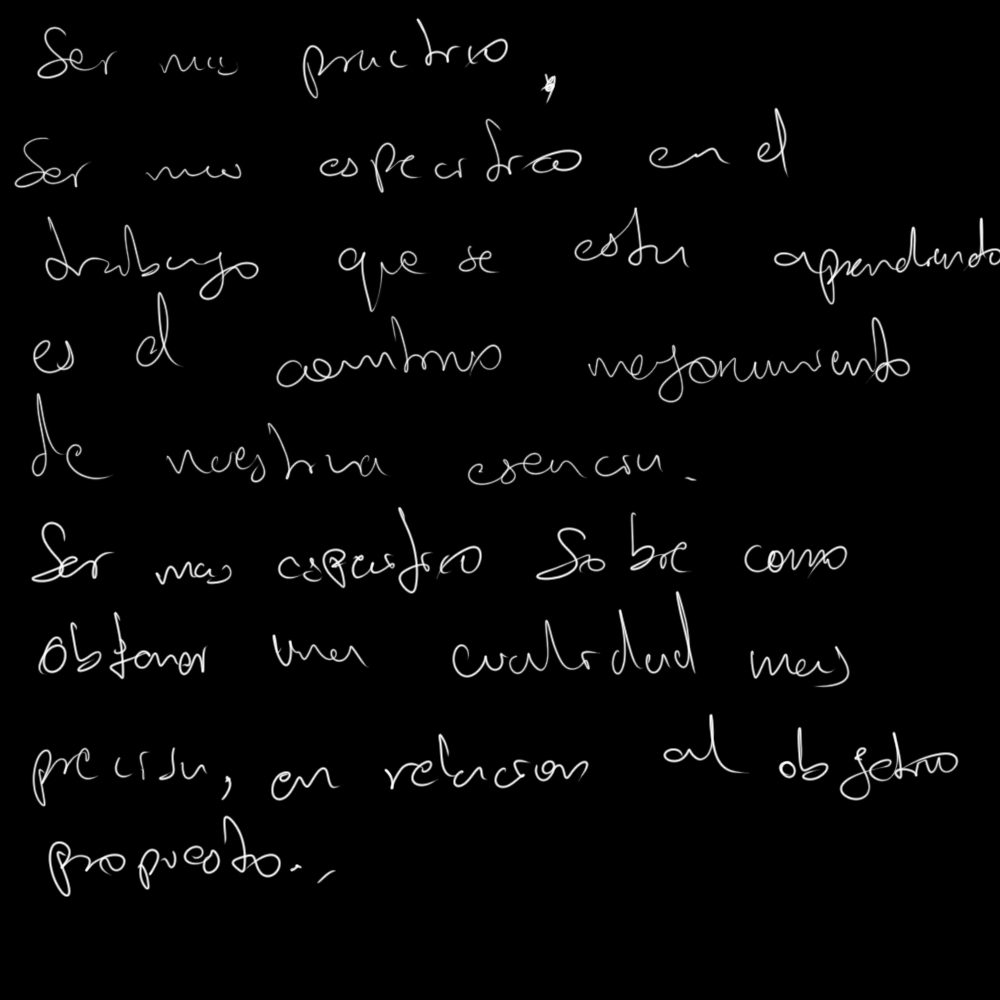 Ser mas practico,
Ser mas especifico en el
trabajo que se esta aprendiendo
es el continuo mejoramiento
de nuestra esencia.
Ser mas especifico sobre como
obtener una cualidad mas
precisa, en relacion al objetivo
propuesto.,